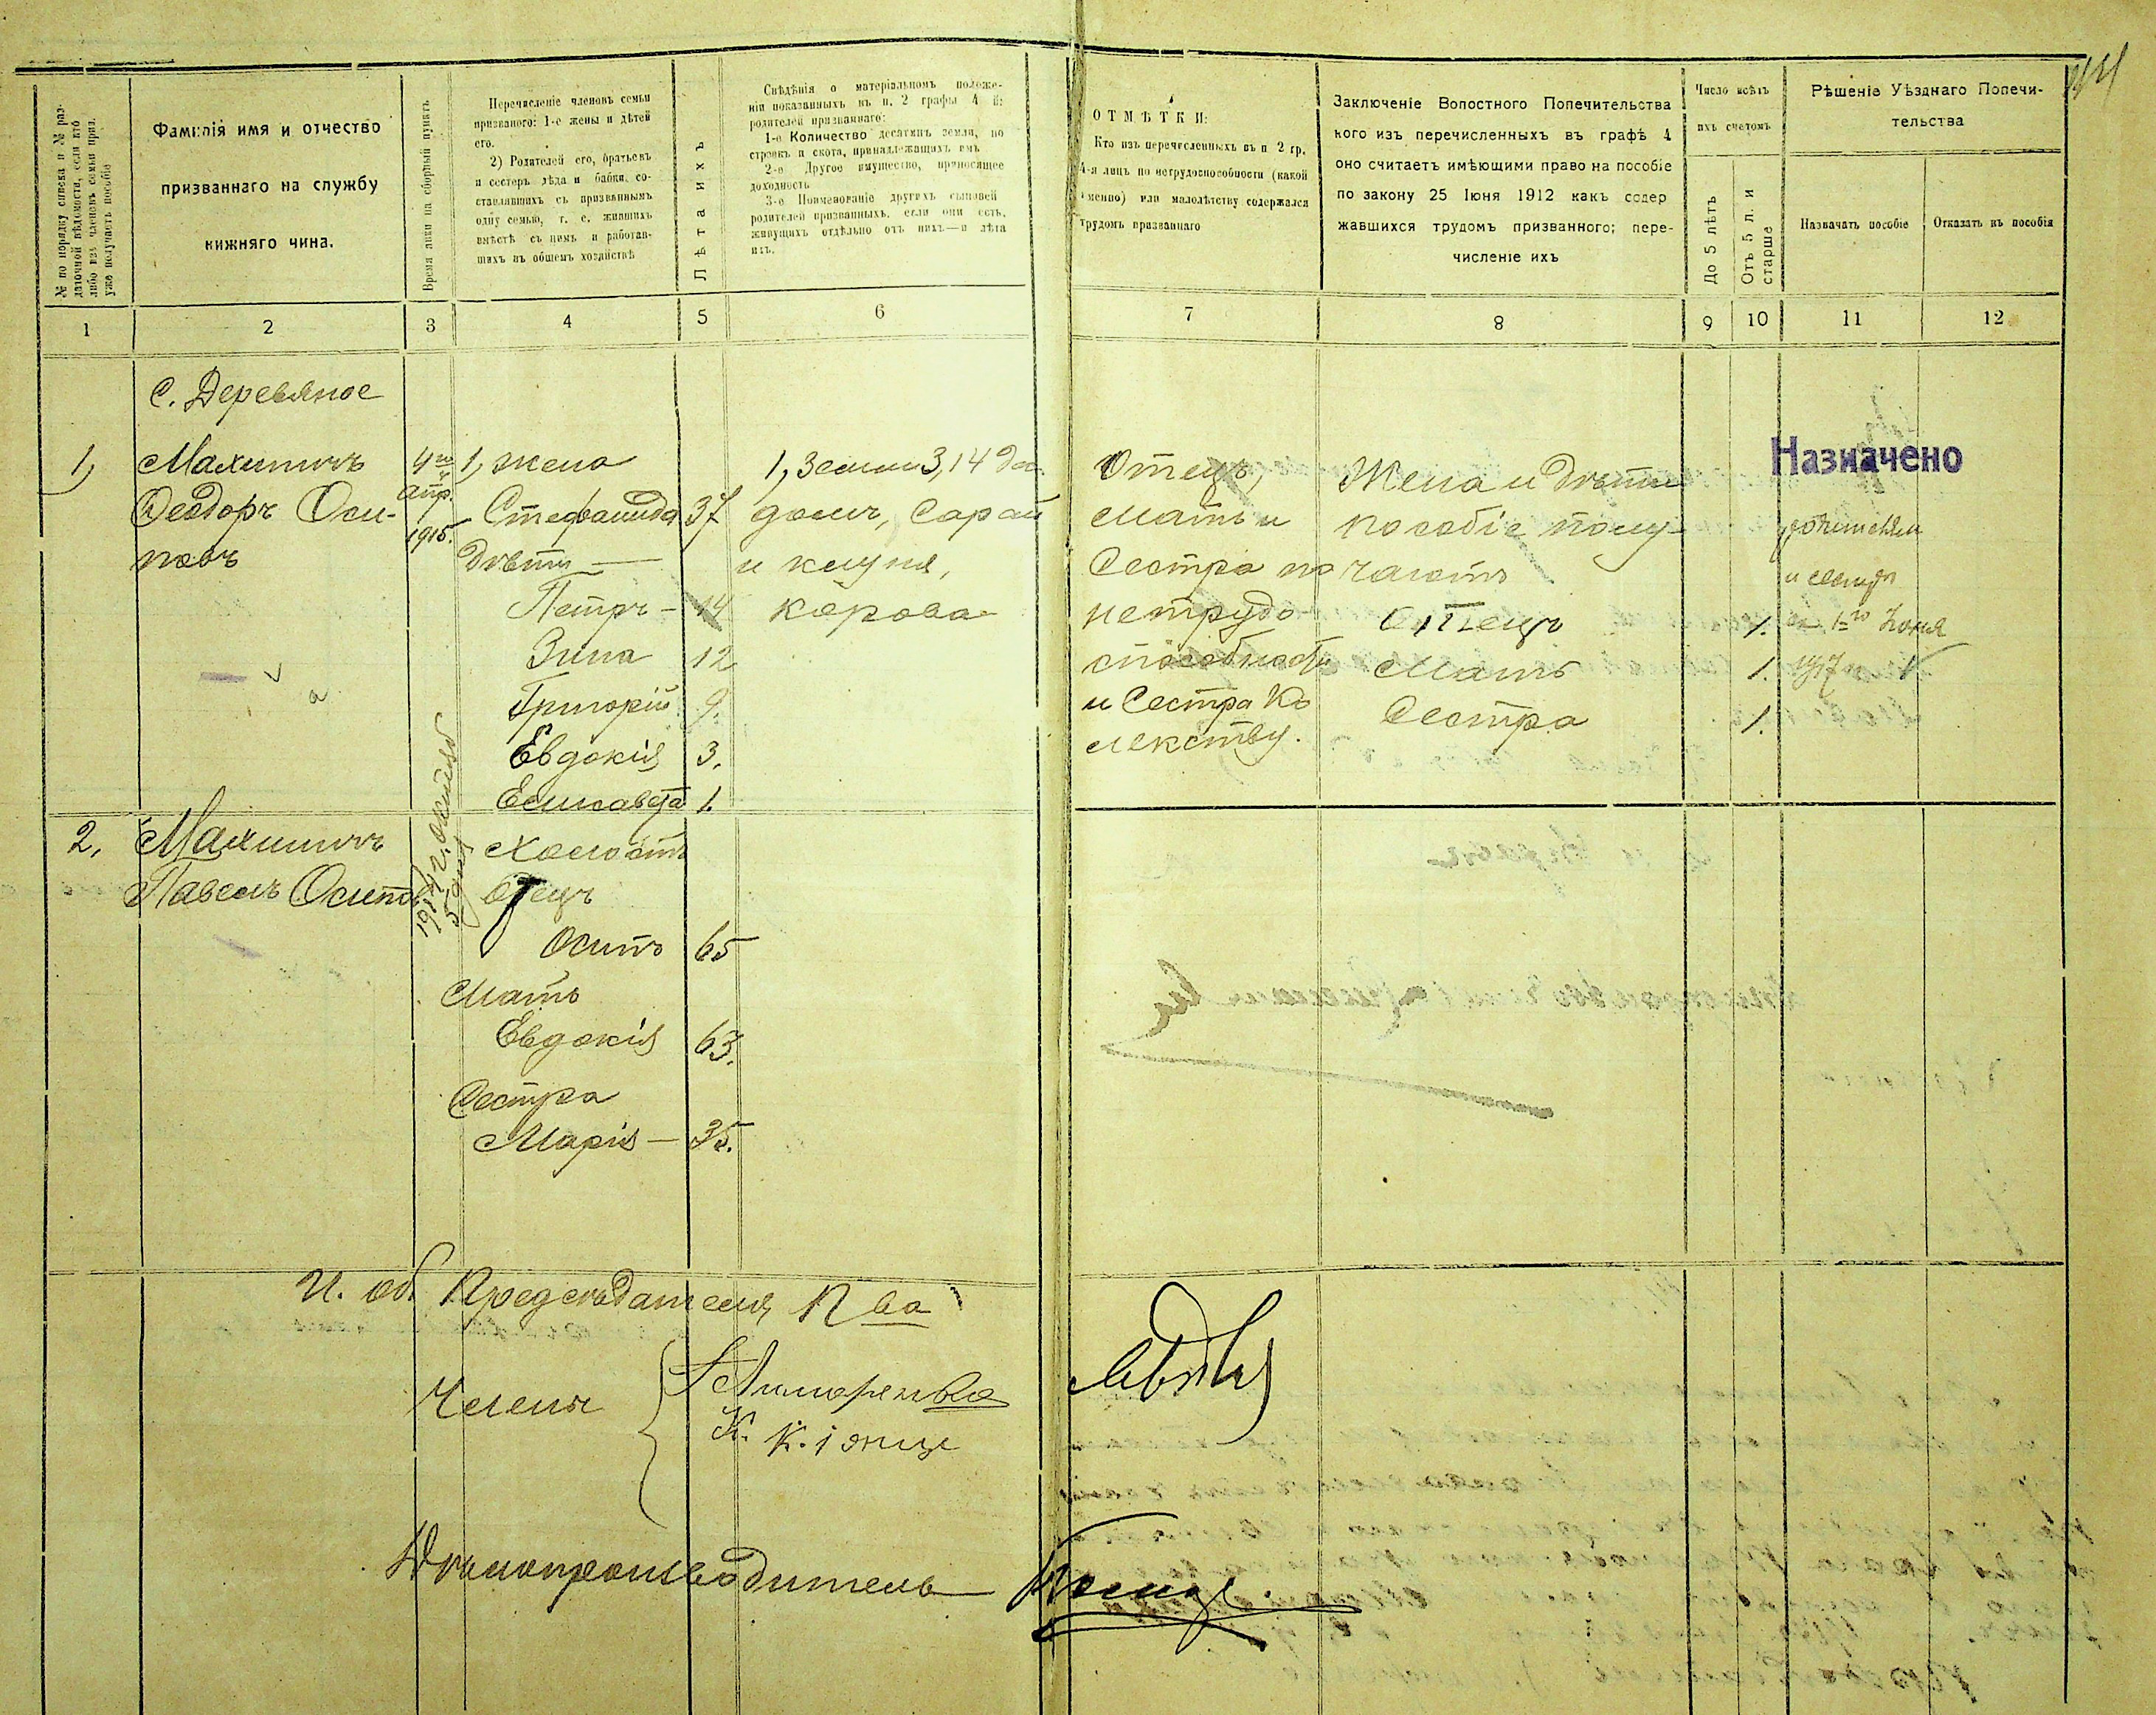 № по порядку списка и № раз-
даточной вѣдомости, если кто
либо изъ членовъ семьи приз.
уже получаетъ пособіе
Фамилія имя и отчество
призваннаго на службу
нижняго чина.
Время явки на сборный пунктъ
Перечисленіе членовъ семьи
призваного: 1-е жены и дѣтей
его.
2) Родителей его, братьевъ
и сестеръ дѣда и бабки, со-
ставлявшихъ съ призваннымъ
одну семью, т. е. жившихъ
вмѣстѣ съ нимъ и работав-
шихъ въ общемъ хозяйствѣ
Лѣта ихъ
Свѣдѣнія о матеріальномъ положе-
ніи показанныхъ въ п. 2 графы 4 й:
родителей призваннаго:
1-е Количество десятинъ земли, по
строекъ и скота, принадлежащихъ имъ
2-е Другое имущество, приносящее
доходность
3-е Поименованіе другихъ сыновей
родителей призванныхъ, если они есть,
живущихъ отдѣльно отъ нихъ—и лѣта
ихъ.
ОТМѢТКИ:
Кто изъ перечисленныхъ въ п 2 гр.
4-я лицъ по нетрудоспособности (какой
именно) или малолѣтству содержался
трудомъ призваннаго
Заключеніе Волостного Попечительства
кого изъ перечисленныхъ въ графѣ 4
оно считаетъ имѣющими право на пособіе
по закону 25 Іюня 1912 какъ содер
жавшихся трудомъ призванного; пере-
численіе ихъ
Число всѣхъ
ихъ счетомъ
До 5 лѣтъ
Отъ 5 л. и
старше
Рѣшеніе Уѣзднаго Попечи-
тельства
Назначать пособіе
Отказать въ пособіи
1 2 3 4 5 6 7 8 9 10 11 12
С. Деревяное
1, Махиничъ
Ѳеодоръ Оси-
повъ
4го
апр.
1915.
1, жена
Стефанида 37
Дѣти —
Петръ — 14
Зина 12
Григорій 9.
Евдокія 3.
Елисавета 1.
1, Земли 3,14 дес.
домъ, Сарай
и клуня,
корова
Отецъ,
мать и
Сестра по
нетрудо
способности
и Сестра Ка
лекству.
Жена и Дѣти
пособіе полу-
чаютъ
Отецъ 1.
Мать 1.
Сестра 1.
Назначено
родителям
и сестрѣ
съ 1го Іюня
1917
2, Махиничъ
Павелъ Осипов
1914 г. октября
5 дня
Холостъ
Отецъ
Осипъ 65
Мать
Евдокія 63.
Сестра
Марія — 35.
И. об. Предсѣдателя П ва
Члены
К.
Дѣлопроизводитель